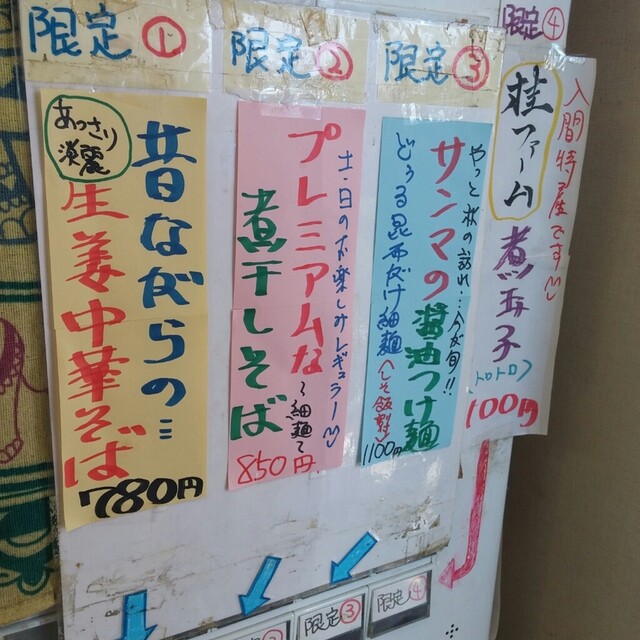 限定①
あっさり
淡麗
昔ながらの…
生姜中華そば
780円
限定②
土・日のお楽しみレギュラー
プレミアムな
煮干しそば
〜細麺〜
850円
限定③
やっと秋の訪れ…今が旬!!
サンマの醤油つけ麺
1100円
限定④
入間特産です
桂ファーム
煮玉子
〈トロトロ〉
100円
②
限定③
限定④